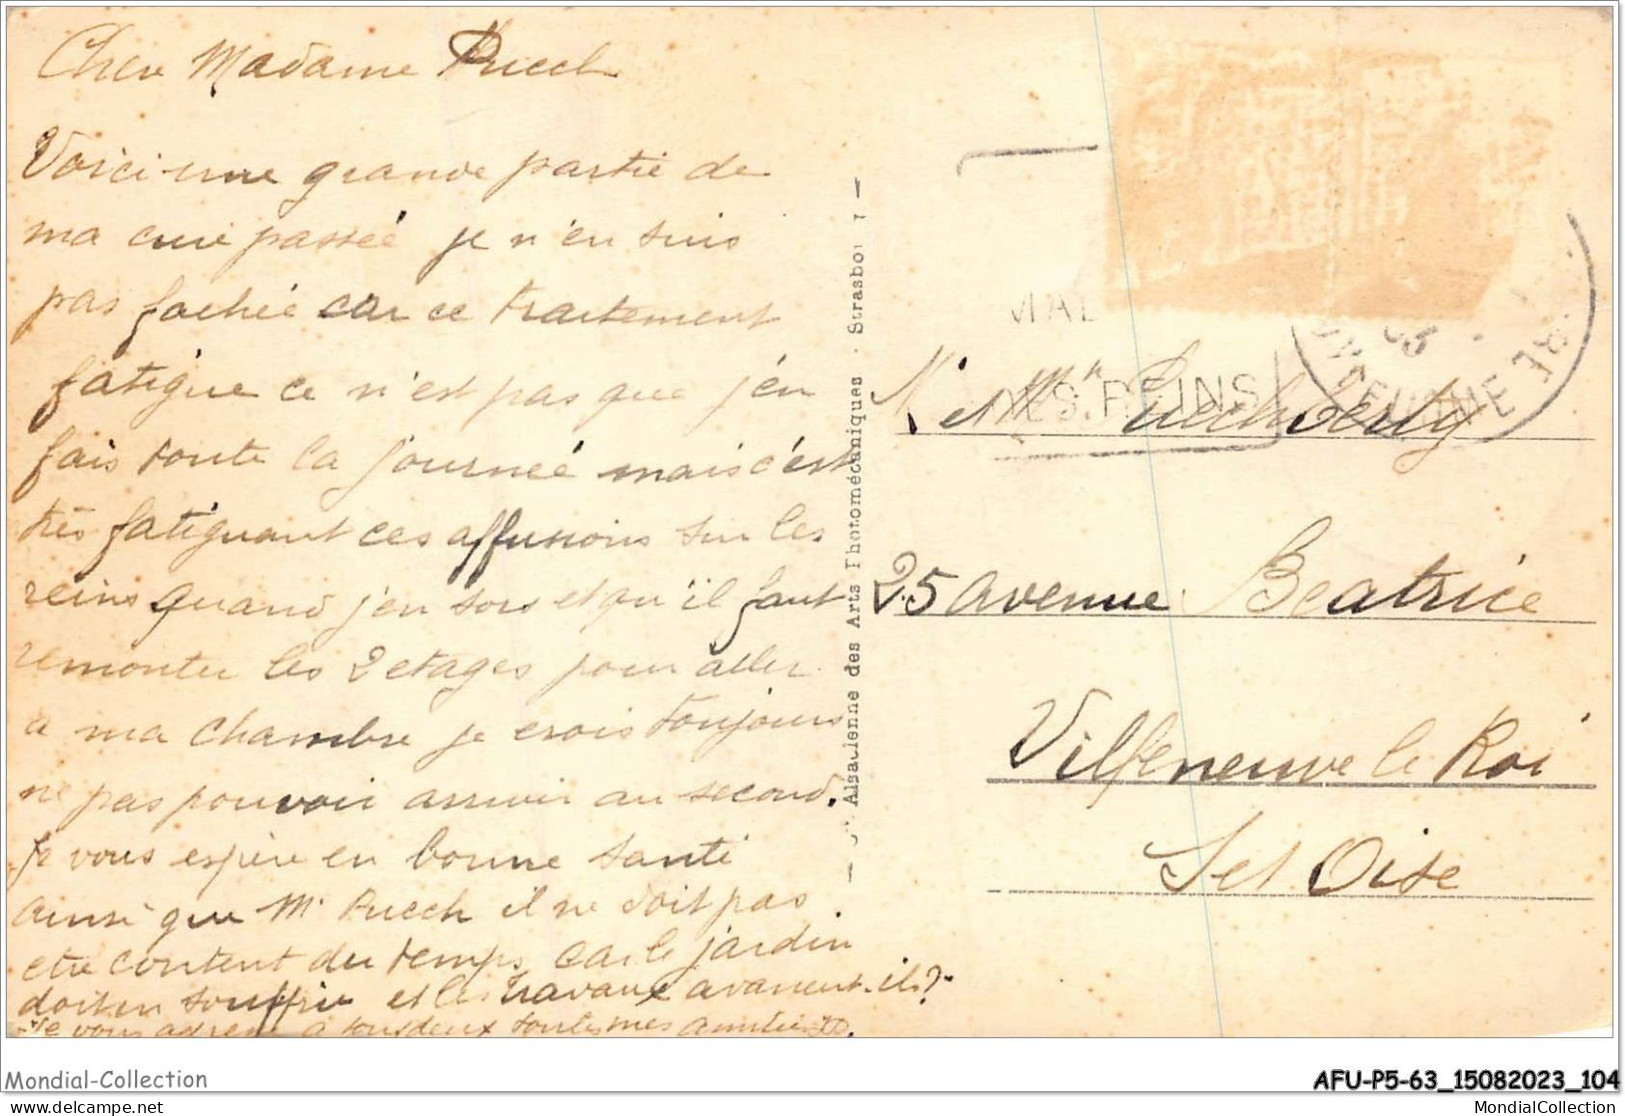 Cher Madame Puech
Voici une grande partie de
ma cure passée je n'en suis
pas fachée car ce traitement
fatigue ce n'est pas que j'en
fais toute la journeé mais c'est
très fatiguant ces affusions sur les
reins quand j'en sors et qu'il faut
remonter les 2 etages pour aller
a ma chambre je crois toujours
ne pas pouvoir arriver au second.
Je vous espère en bonne santé
ainsi que Mr Puech il ne doit pas
etre content du temps car le jardin
doit en souffrir et les travaux avancent-ils?
Je vous adresse a tous deux toutes mes amitiés
Alsacienne des Arts Photomécaniques - Strasbourg
MAL
DES REINS
Mr et Me
25 avenue Beatrice
Villeneuve le Roi
Set Oise
Mondial-Collection
AFU-P5-63_15082023_104
www.delcampe.net
MondialCollection